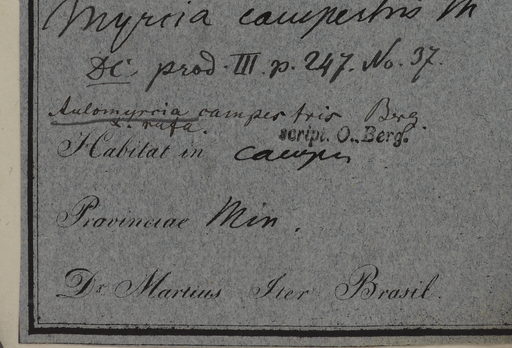 Myrcia campestris M
DC prod. III. p. 247. No. 37.
Aulomyrcia campestris Berg.
α. rufa.
script. O. Berg.
Habitat in campis
Provinciae Min.
Dr. Martius Iter Brasil.